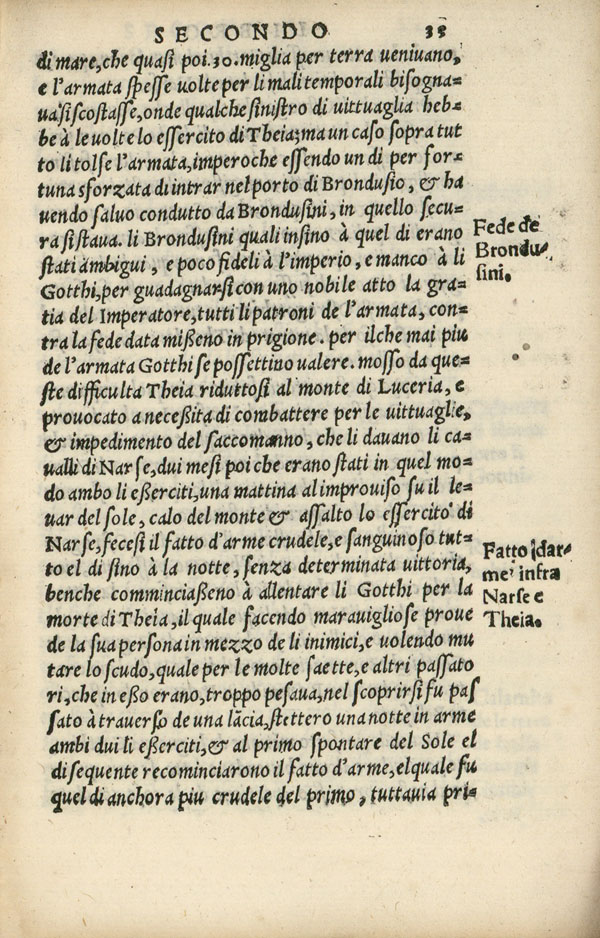 SECONDO 35
di mare, che quasi poi.30.miglia per terra venivano,
e l'armata spesse uolte per li mali temporali bisogna=
ua si scostasse, onde qualche sinistro di vittuaglia heb=
be à le uolte lo essercito di Theia; ma un caso sopra tut
to li tolse l'armata, imperoche essendo un di per for=
tuna sforzata di intrar nel porto di Brondusio, & ha
vendo saluo condutto da Brondusini, in quello secu=
ra si staua. li Brondusini quali insino à quel di erano
stati ambigui, e poco fideli à l'imperio, e manco à li
Gotthi, per guadagnarsi con uno nobile atto la gra=
tia del Imperatore, tutti li patroni de l'armata, con=
tra la fede data mißeno in prigione. per ilche mai piu
de l'armata Gotthi se possettino valere. mosso da que=
ste difficulta Theia riduttosi al monte di Luceria, e
provocato a neceßita di combattere per le vittuaglie,
& impedimento del saccomanno, che li davano li ca=
ualli di Narse, dui mesi poi che erano stati in quel mo=
do ambo li eßerciti, una mattina al improuiso su il le=
uar del sole, calo del monte & assalto lo essercito di
Narse, fecesi il fatto d'arme crudele, e sanguinoso tut=
to el di sino à la notte, senza determinata vittoria,
benche comminciaßeno à allentare li Gotthi per la
morte di Theia, il quale facendo maravigliose prove
de la sua persona in mezzo de li inimici, e volendo mu
tare lo scudo, quale per le molte saette, e altri passato
ri, che in eßo erano, troppo pesava, nel scoprirsi fu pas
sato à trauerso de una lācia, stettero una notte in arme
ambi dui li eßerciti, & al primo spontare del Sole el
di sequente recominciarono il fatto d'arme, el quale fu
quel di anchora piu crudele del primo, tuttavia pri=
Fede de
Brondu=
sini.
Fatto idar=
me' infra
Narse e
Theia.